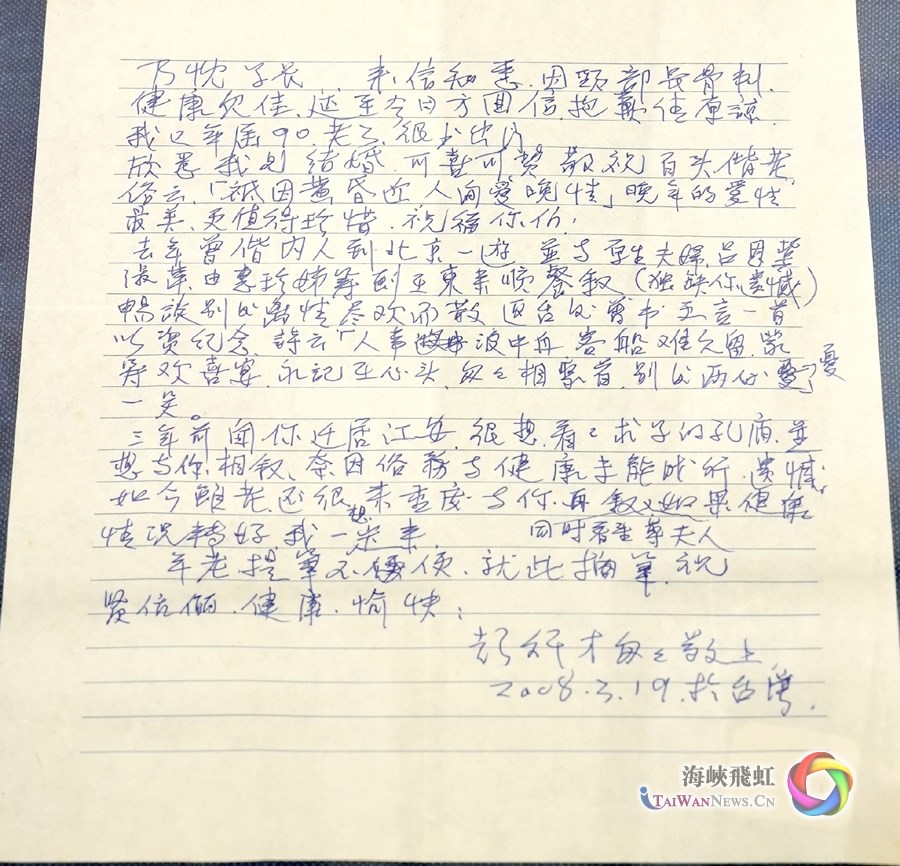 乃忱学长 来信知悉,因頸部長骨刺,
健康欠佳,延至今日方回信抱歉佳原諒.
我已年届90老了,很少出门
欣悉我兄结婚,可喜可賀敬祝百头偕老,
俗云,「祗因黄昏近人间爱晚情」晚年的爱情
最美,更值得珍惜.祝福你们!
去年曾偕内人到北京一遊,並与 夫婦,吕
淑萍,由惠珍姊等到王東来順餐叙(独缺你遗憾)
暢談别後离情尽欢而散 返台後 书五言一首
以资纪念 詩云「人事 波中舟 客船难久留,蒙
等欢喜宴,永记在心头,匆匆相聚首,别後两份憂」憂
一笑。
三年前闻你迁居江安,很想看看求子的孔庙,並
想与你相叙,奈因俗務与健康未能成行.遗憾,
如今雖老还很想来重慶与你再叙,如果健康
情况轉好,我一定来, 同时看望尊夫人
年老提筆不便,就此搁筆.祝
贤伉俪,健康,愉快;
才匆匆敬上
2008.3.19.於台灣.
海峽飛虹
iTaiWanNews.Cn